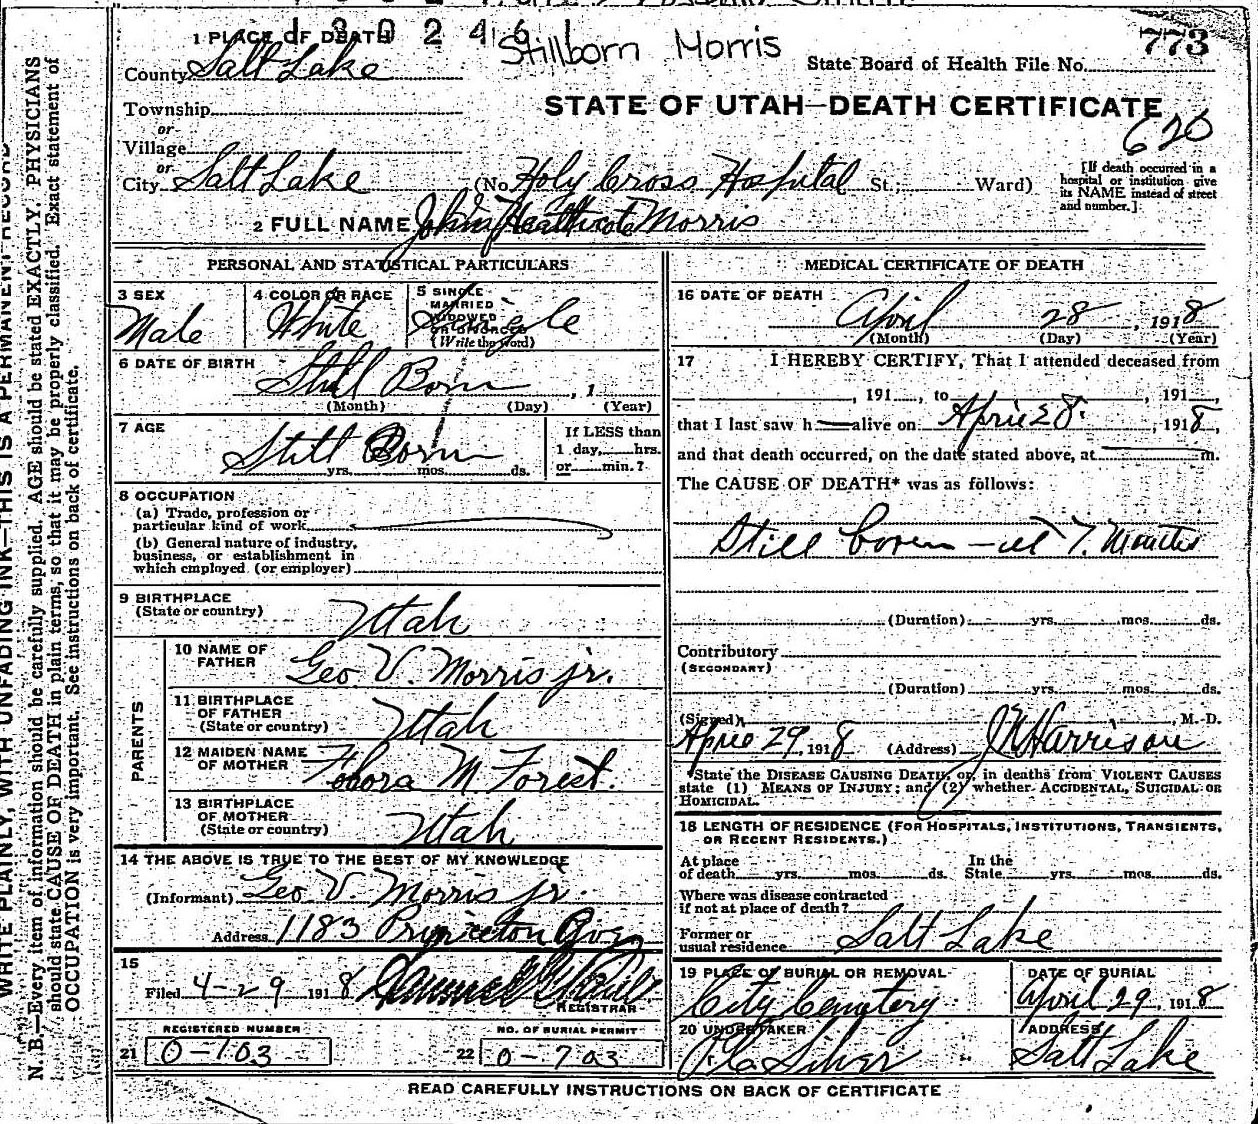 1 3 0 2 4 6
1 PLACE OF DEATH
Stillborn Morris
773
County Salt Lake
State Board of Health File No.
Township
STATE OF UTAH—DEATH CERTIFICATE
or
620
Village
or
City Salt Lake (No. Holy Cross Hospital St.; Ward)
[If death occurred in a
hospital or institution give
its NAME instead of street
and number.]
2 FULL NAME John Heathcote Morris
PERSONAL AND STATISTICAL PARTICULARS
3 SEX
Male
4 COLOR OR RACE
White
5 SINGLE
MARRIED
WIDOWED
OR DIVORCED
(Write the word)
Single
6 DATE OF BIRTH
Still Born , 1
(Month) (Day) (Year)
7 AGE
Still Born
yrs. mos. ds.
If LESS than
1 day, hrs.
or min.?
8 OCCUPATION
(a) Trade, profession or
particular kind of work
(b) General nature of industry,
business, or establishment in
which employed (or employer)
9 BIRTHPLACE
(State or country)
Utah
PARENTS
10 NAME OF
FATHER
Geo V. Morris jr.
11 BIRTHPLACE
OF FATHER
(State or country)
Utah
12 MAIDEN NAME
OF MOTHER
M. Forest.
13 BIRTHPLACE
OF MOTHER
(State or country)
Utah
14 THE ABOVE IS TRUE TO THE BEST OF MY KNOWLEDGE
(Informant) Geo V. Morris jr.
Address 1183 Princeton
15
Filed 4-29 1918
REGISTRAR
REGISTERED NUMBER
21 0-703
NO. OF BURIAL PERMIT
22 0-703
MEDICAL CERTIFICATE OF DEATH
16 DATE OF DEATH
April 28, 1918
(Month) (Day) (Year)
17 I HEREBY CERTIFY, That I attended deceased from
, 191 , to , 191 ,
that I last saw h alive on April 28. , 1918,
and that death occurred, on the date stated above, at m.
The CAUSE OF DEATH* was as follows:
Still born — at 7. Months
(Duration) yrs. mos. ds.
Contributory
(SECONDARY)
(Duration) yrs. mos. ds.
(Signed) , M.-D.
April 29, 1918 (Address) Harrison
*State the DISEASE CAUSING DEATH, or, in deaths from VIOLENT CAUSES
state (1) MEANS OF INJURY; and (2) whether ACCIDENTAL, SUICIDAL OR
HOMICIDAL.
18 LENGTH OF RESIDENCE (FOR HOSPITALS, INSTITUTIONS, TRANSIENTS,
OR RECENT RESIDENTS.)
At place
of death yrs. mos. ds.
In the
State yrs. mos. ds.
Where was disease contracted
if not at place of death?
Former or
usual residence Salt Lake
19 PLACE OF BURIAL OR REMOVAL
City Cemetery
DATE OF BURIAL
April 29, 1918
20 UNDERTAKER
ADDRESS
Salt Lake
READ CAREFULLY INSTRUCTIONS ON BACK OF CERTIFICATE
WRITE PLAINLY, WITH UNFADING INK—THIS IS A PERMANENT RECORD
N. B.—Every item of information should be carefully supplied. AGE should be stated EXACTLY. PHYSICIANS
should state CAUSE OF DEATH in plain terms, so that it may be properly classified. Exact statement of
OCCUPATION is very important. See instructions on back of certificate.